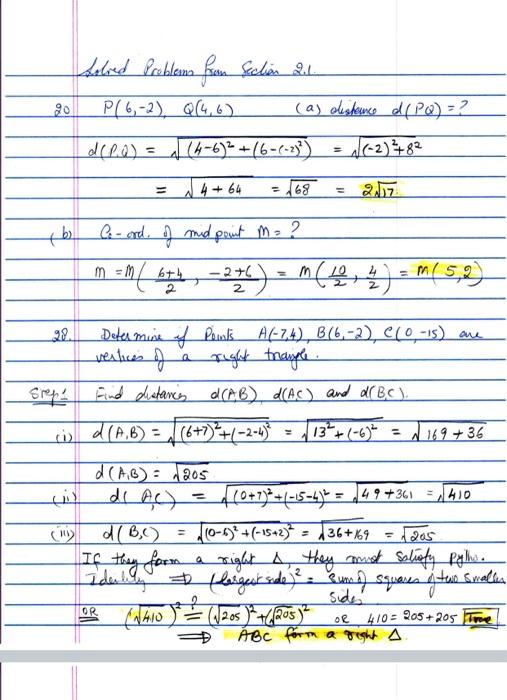 Solved Problems from Section 2.1.
20 P(6,-2), Q(4,6) (a) distance d(PQ) = ?
d(P,Q) = √((4-6)² + (6-(-2)²) = √(-2)²+8²
= √4+64 = √68 = 2√17.
(b) Co-ord. of mid point M = ?
M = M( 6+4/2 , -2+6/2 ) = M( 10/2 , 4/2 ) = M( 5,2)
28. Determine if Points A(-7,4), B(6,-2), C(0,-15) are
vertices of a right triangle.
Step 1 Find distances d(AB), d(AC) and d(BC).
(i) d(A,B) = √(6+7)²+(-2-4)² = √13²+(-6)² = √169+36
d(A,B) = √205
(ii) d( A,C) = √(0+7)²+(-15-4)² = √49+361 = √410
(iii) d( B,C) = √(0-6)²+(-15+2)² = √36+169 = √205
If they form a right Δ, they must satisfy Pytho.
Identity ⇒ (largest side)² = Sum of squares of two smaller
sides
OR (√410)² ?= (√205)²+(√205)² OR 410 = 205+205 True
⇒ ABC form a right Δ